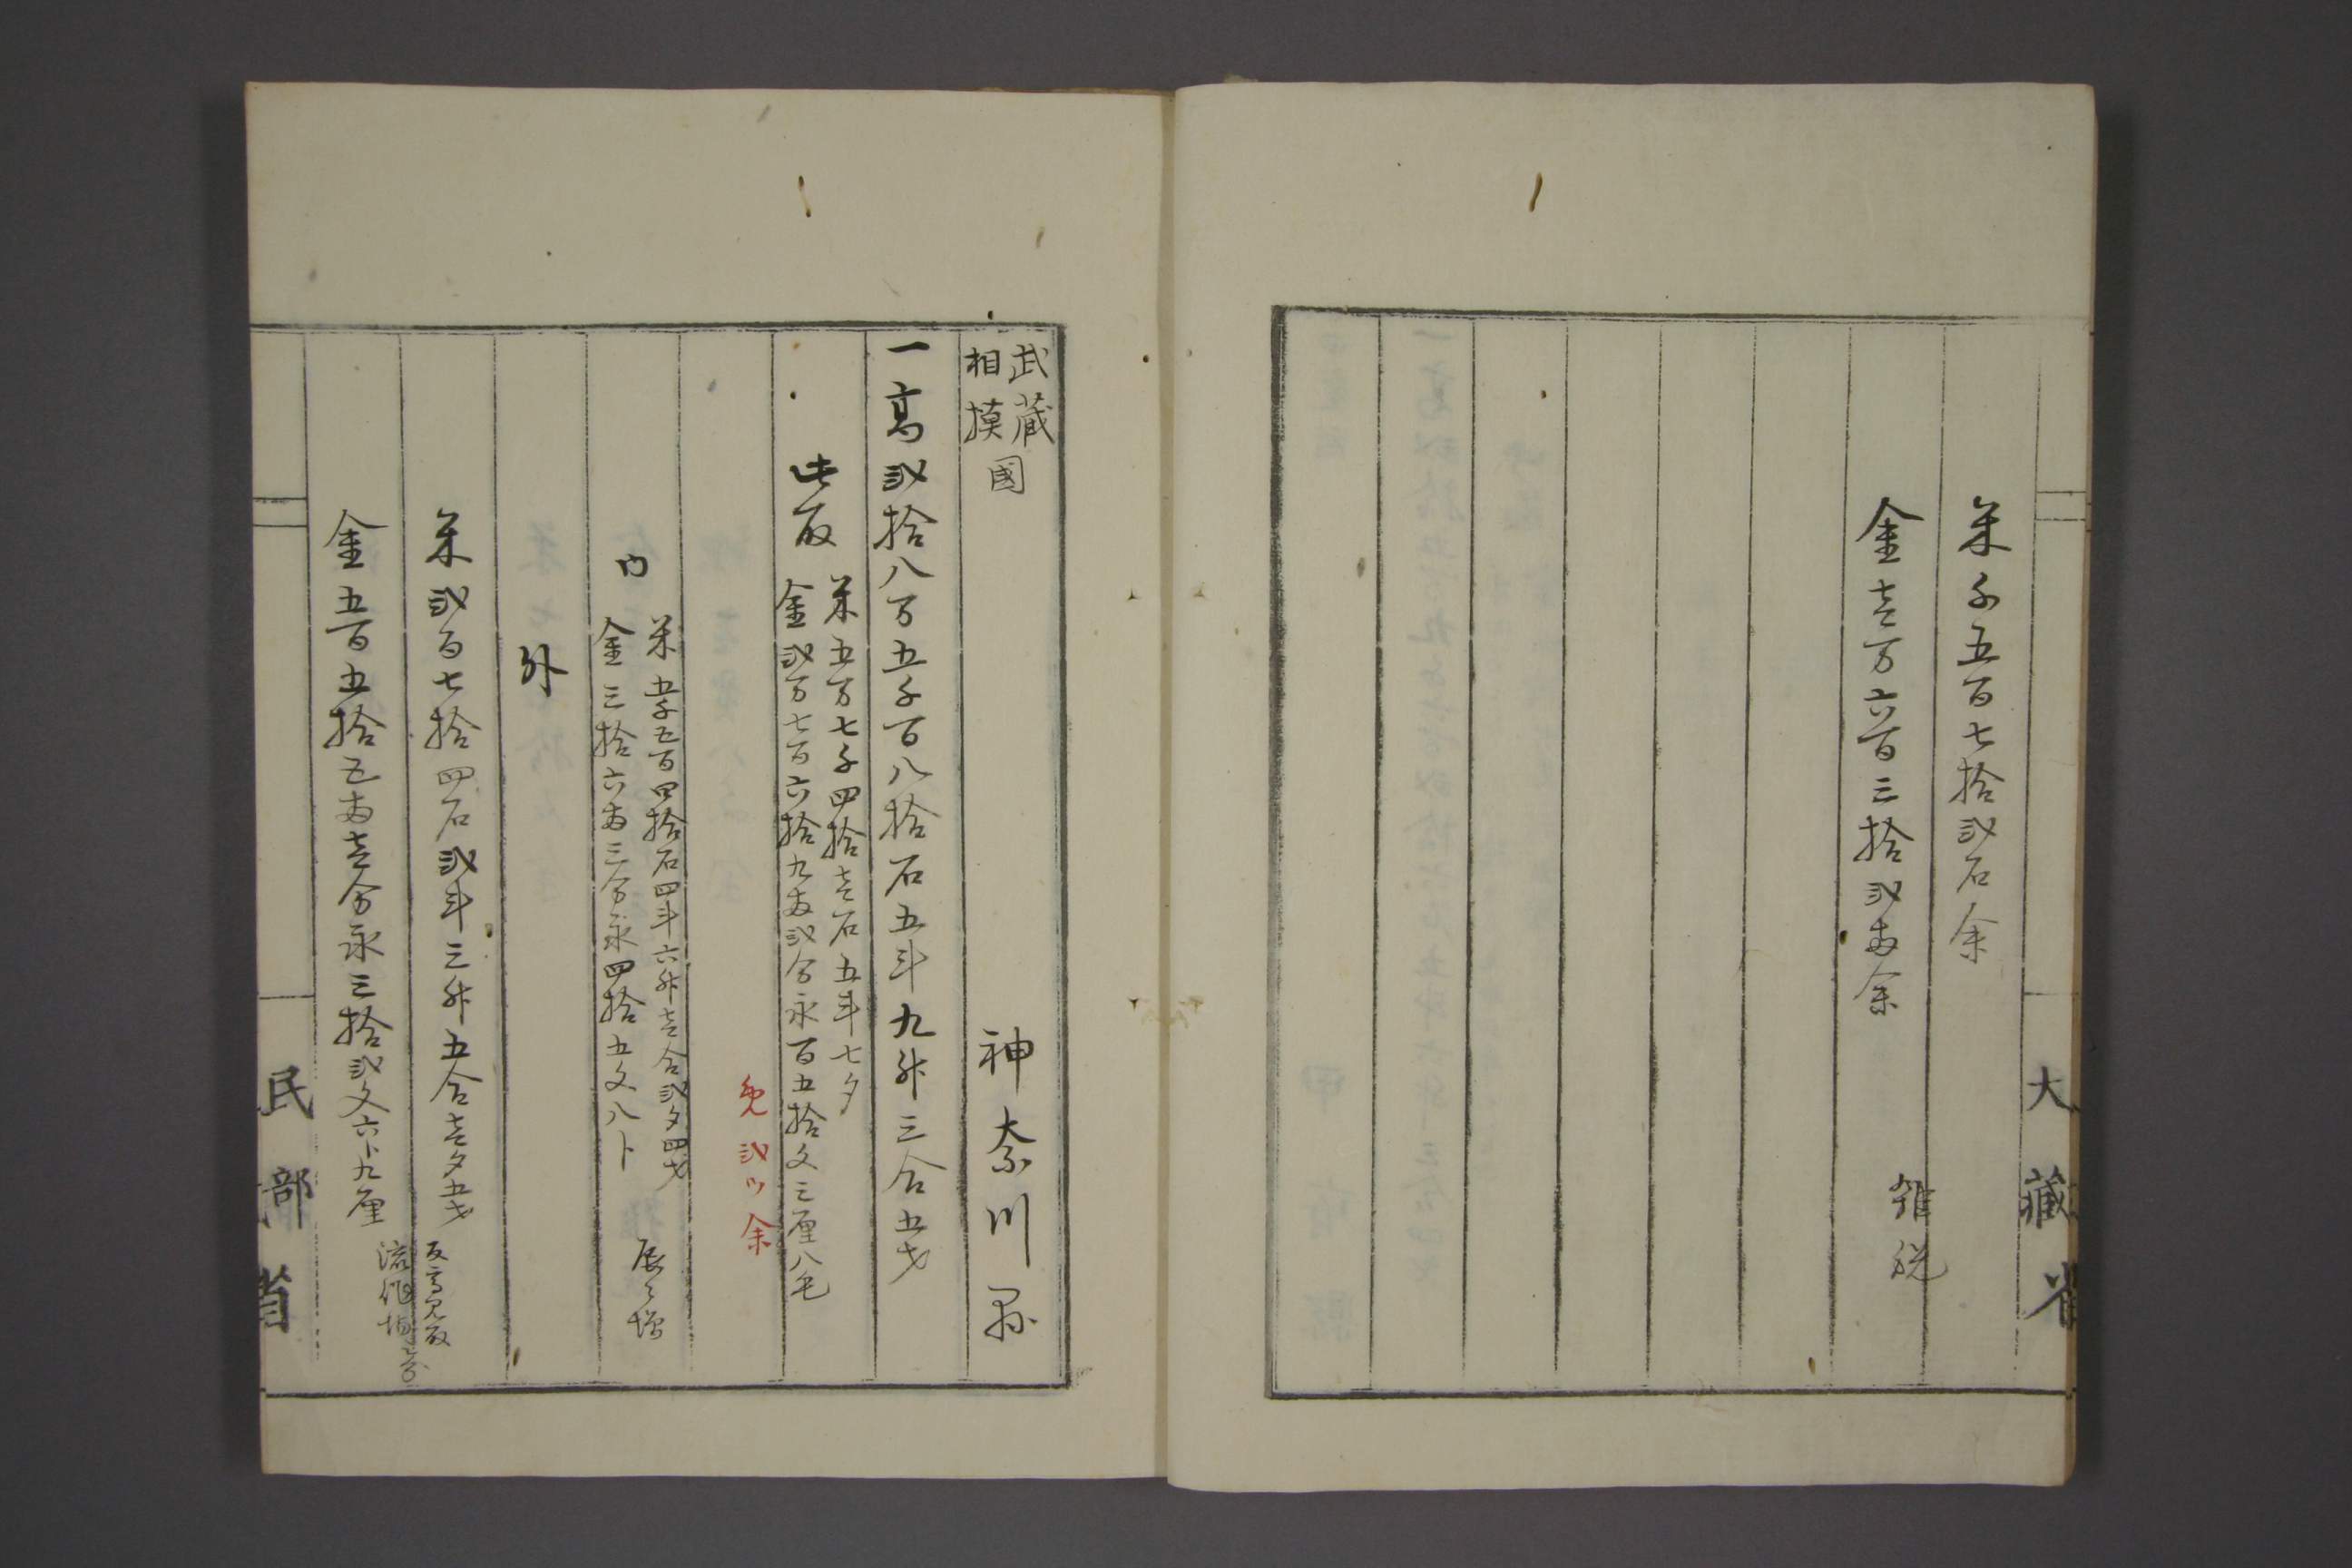 米千五百七拾弐石余
金壱万六百三拾弐両余
雑税
大藏省
武藏
相摸
國
神奈川県
一高弐拾八万五千百八拾石五斗九升三合五才
此取
米五万七千四拾壱石五斗七夕
金弐万七百六拾九両弐分永百五拾文三厘八毛
免弐ツ余
内
米五千五百四拾石四斗六升壱合弐夕四才
金三拾六両三分永四拾五文八卜
辰ゟ増
外
米弐百七拾四石弐斗三升五合壱夕五才
金五百五拾五両壱分永三拾弐文六卜九厘
反高見取
流作場
民部省